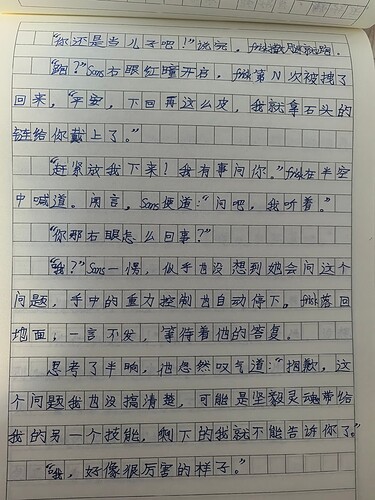 “你还是当儿子吧！”说完，frisk撒腿就跑。
“跑？”Sans右眼红瞳开启，frisk第N次被拽了
回来，“平安，下回再这么皮，我就拿石头的
链给你戴上了。”
“赶紧放我下来！我有事问你。”frisk在半空
中喊道。闻言，Sans便道：“问吧，我听着。”
“你那右眼怎么回事？”
“我？”Sans一愣，似乎也没想到她会问这个
问题，手中的重力控制也自动停下，frisk落回
地面，一言不发，等待着他的答复。
思考了半晌，他忽然叹气道：“抱歉，这
个问题我也没搞清楚，可能是坚毅灵魂带给
我的另一个技能，剩下的我就不能告诉你了。”
“哦，好像很厉害的样子。”